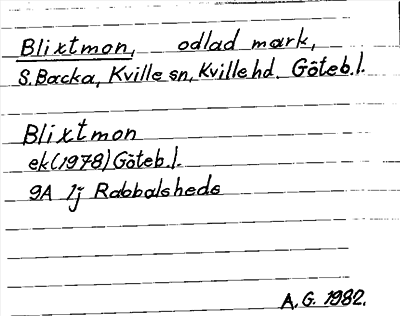 Blixtmon, odlad mark,
S. Backa, Kville sn, Kville hd. Göteb. l.
Blixtmon
ek (1978) Göteb. l.
9A 1j Rabbalshede
A. G. 1982.